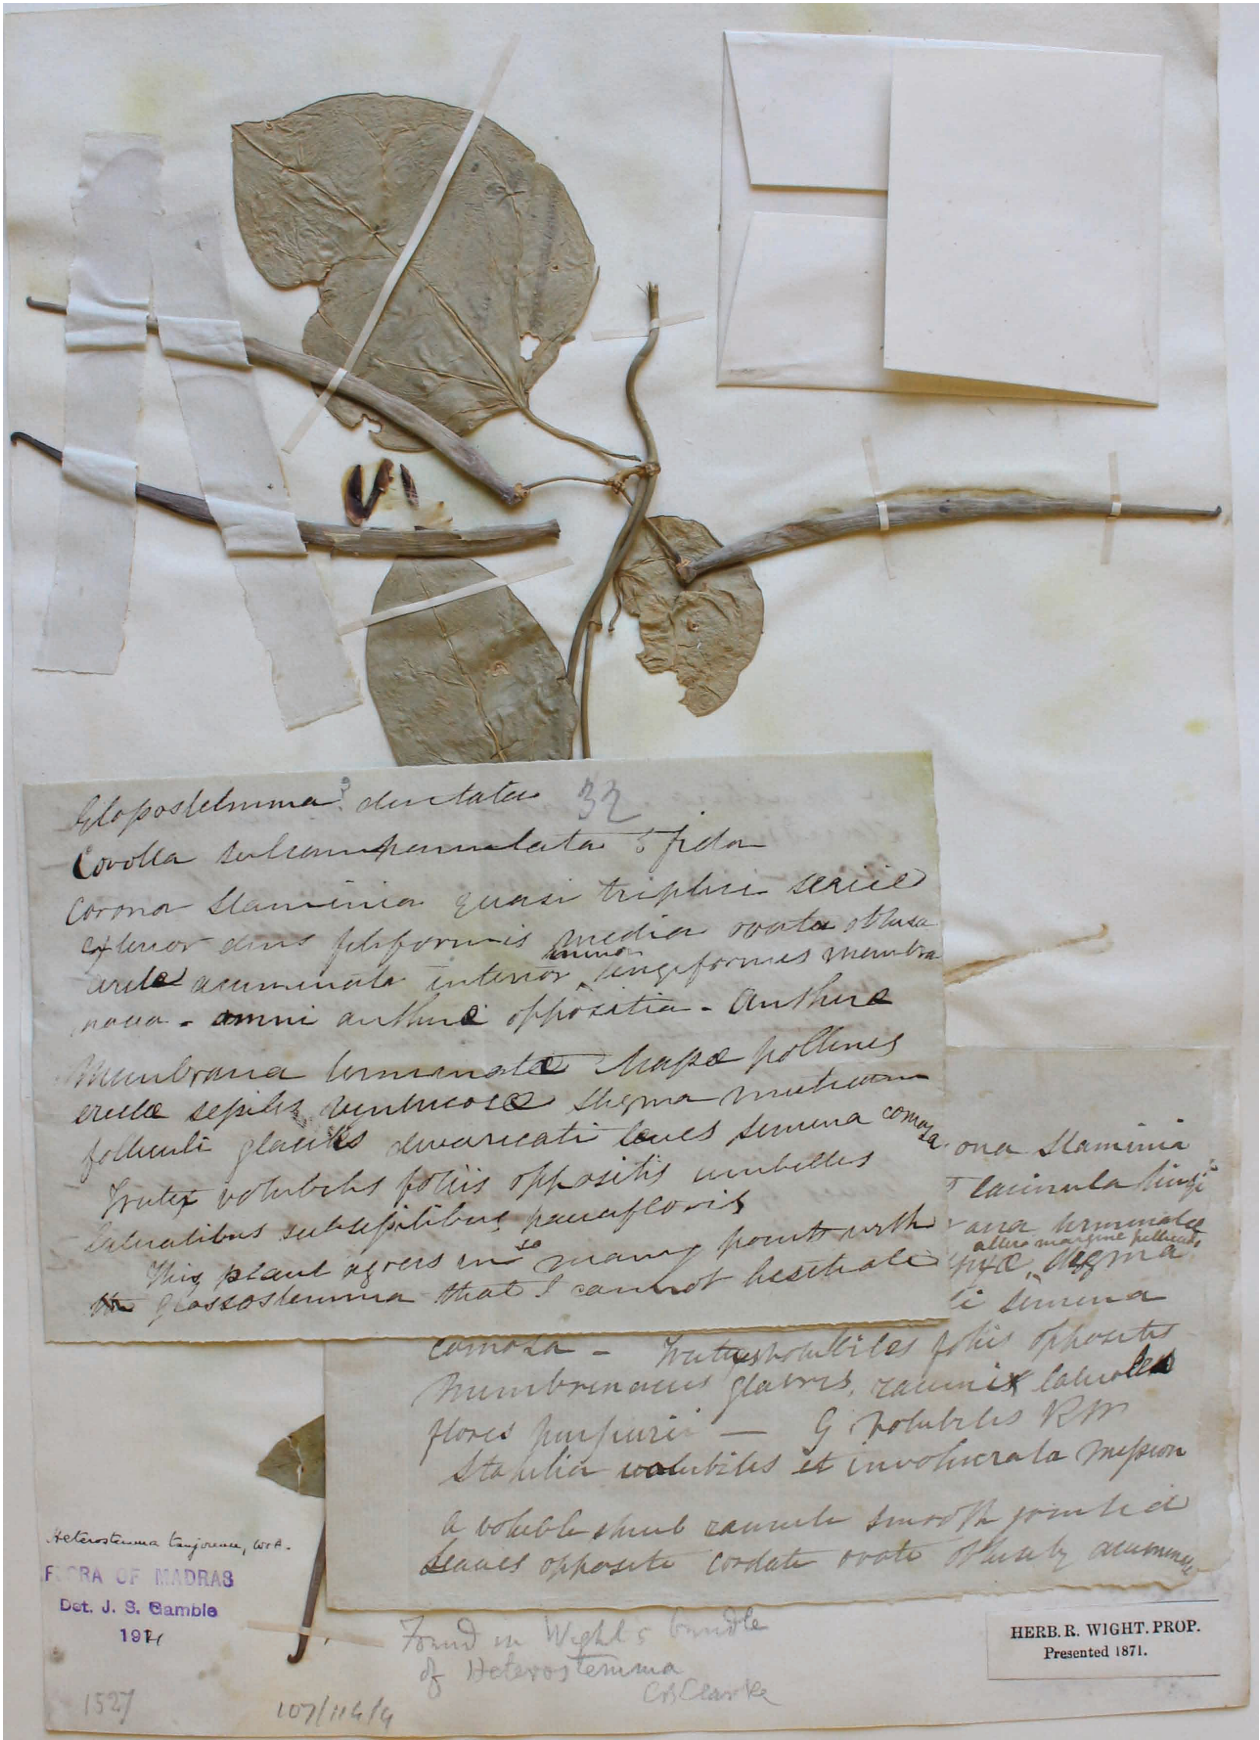 Glossostemma? dentata 32
Corolla subcampanulata 5 fida
corona staminia quasi triplici serie
exterior dens filiformis media ovata obtusa
acuminata interior minor lingiformis membra
nacea - omni antherae opposita - antherae
Membrana terminatae massae pollines
erectae sessiles ventricosae stigma muticum
folliculi glabris divaricati leves semina comosa
Frutex volubilis foliis oppositis umbellis
lateralibus subsessilibus paucifloris
This plant agrees in so many points with
the glossostemma that I cannot hesitate
ona staminia
lacinula lingi
ana terminatae
altero margine pellucido
stigma
li semina
comosa - Frutex volubiles foliis oppositis
Membrinaceus glabris, racemix laterales
flores purpurii — G volubilis RW
Stapelia volubiles et involucrata Mission
A voluble shrub ramuli smooth jointed
Leaves opposite cordate ovate obtusely acuminate
Heterostemma tanjorense, W&A.
FLORA OF MADRAS
Det. J. S. Gamble
1921
Found in Wight's bundle
of Heterostemma
CBClarke
HERB. R. WIGHT. PROP.
Presented 1871.
1527
107/114/4